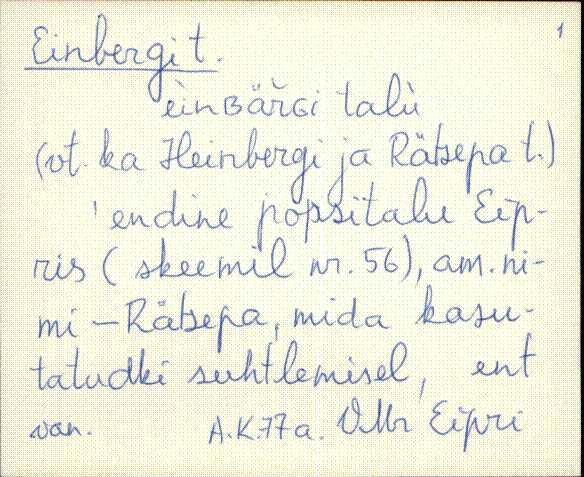 1
Einbergi t.
èinʙäř̆ɢi talù
(vt. ka Heinbergi ja Rätsepa t.)
'endine popsitalu Eip-
ris (skeemil nr. 56), am. ni-
mi – Rätsepa, mida kasu-
tatudki suhtlemisel, ent
van. A.K.77a. VMr Eipri